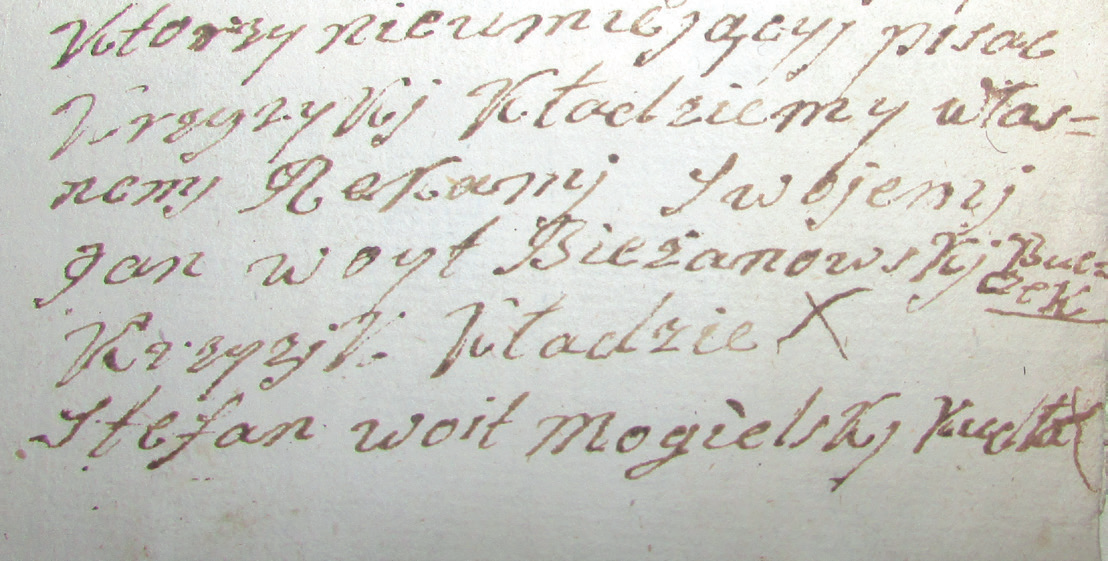 Ktorzy nieumiejącyj pisac
Krzyzykj Kładziemy włas=
nemy Rekamj Swojemj
Jan woyt Bieżanowskj Buc=
zek
Krzyzjk Kładzie X
Stefan woit Mogielskj